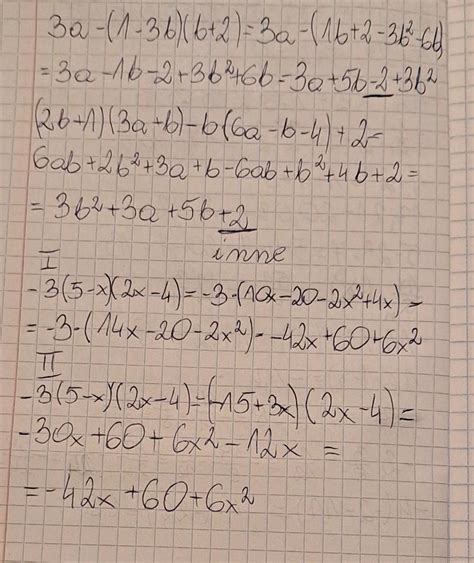 3a-(1-3b)(b+2)=3a-(1b+2-3b²-6b)
=3a-1b-2+3b²+6b=3a+5b-2+3b²
(2b+1)(3a+b)-b(6a-b-4)+2=
6ab+2b²+3a+b-6ab+b²+4b+2=
=3b²+3a+5b+2
inne
I
-3(5-x)(2x-4)=-3·(10x-20-2x²+4x)=
=-3·(14x-20-2x²)=-42x+60+6x²
II
-3(5-x)(2x-4)=(-15+3x)(2x-4)=
-30x+60+6x²-12x=
=-42x+60+6x²